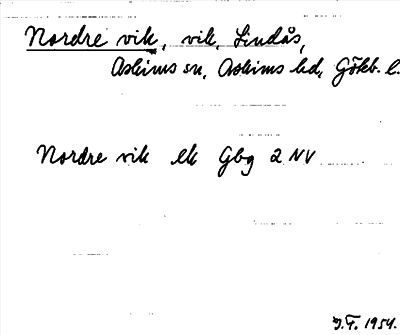 Nordre vik, vik, Lindås,
Askims sn, Askims hd, Göteb. l.
Nordre vik ek Gbg 2 NV
J.F. 1954.